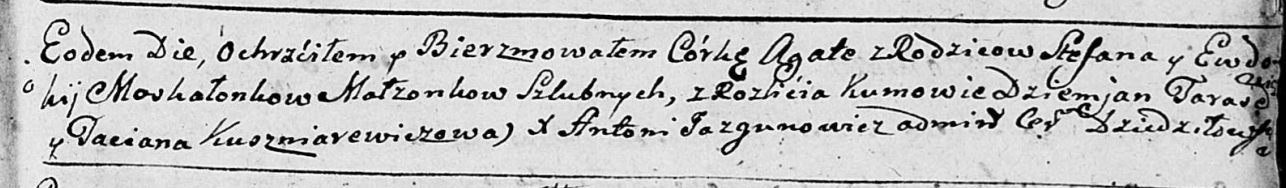 Eodem Die, Ochrzciłem y Bierzmowałem Córkę Agatę z Rodzicow Stefana y Ewdo-
kij Moskałonkow Małzonkow Szlubnych, z Rozlicia Kumowie Dziemjan Taras
y Taciana Kuszniarewiczowa) X Antoni Jazgunowicz admin Cer